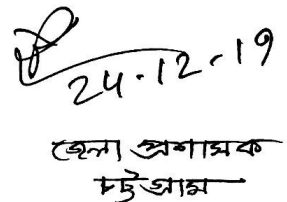 24.12.19
জেলা প্রশাসক
চট্টগ্রাম